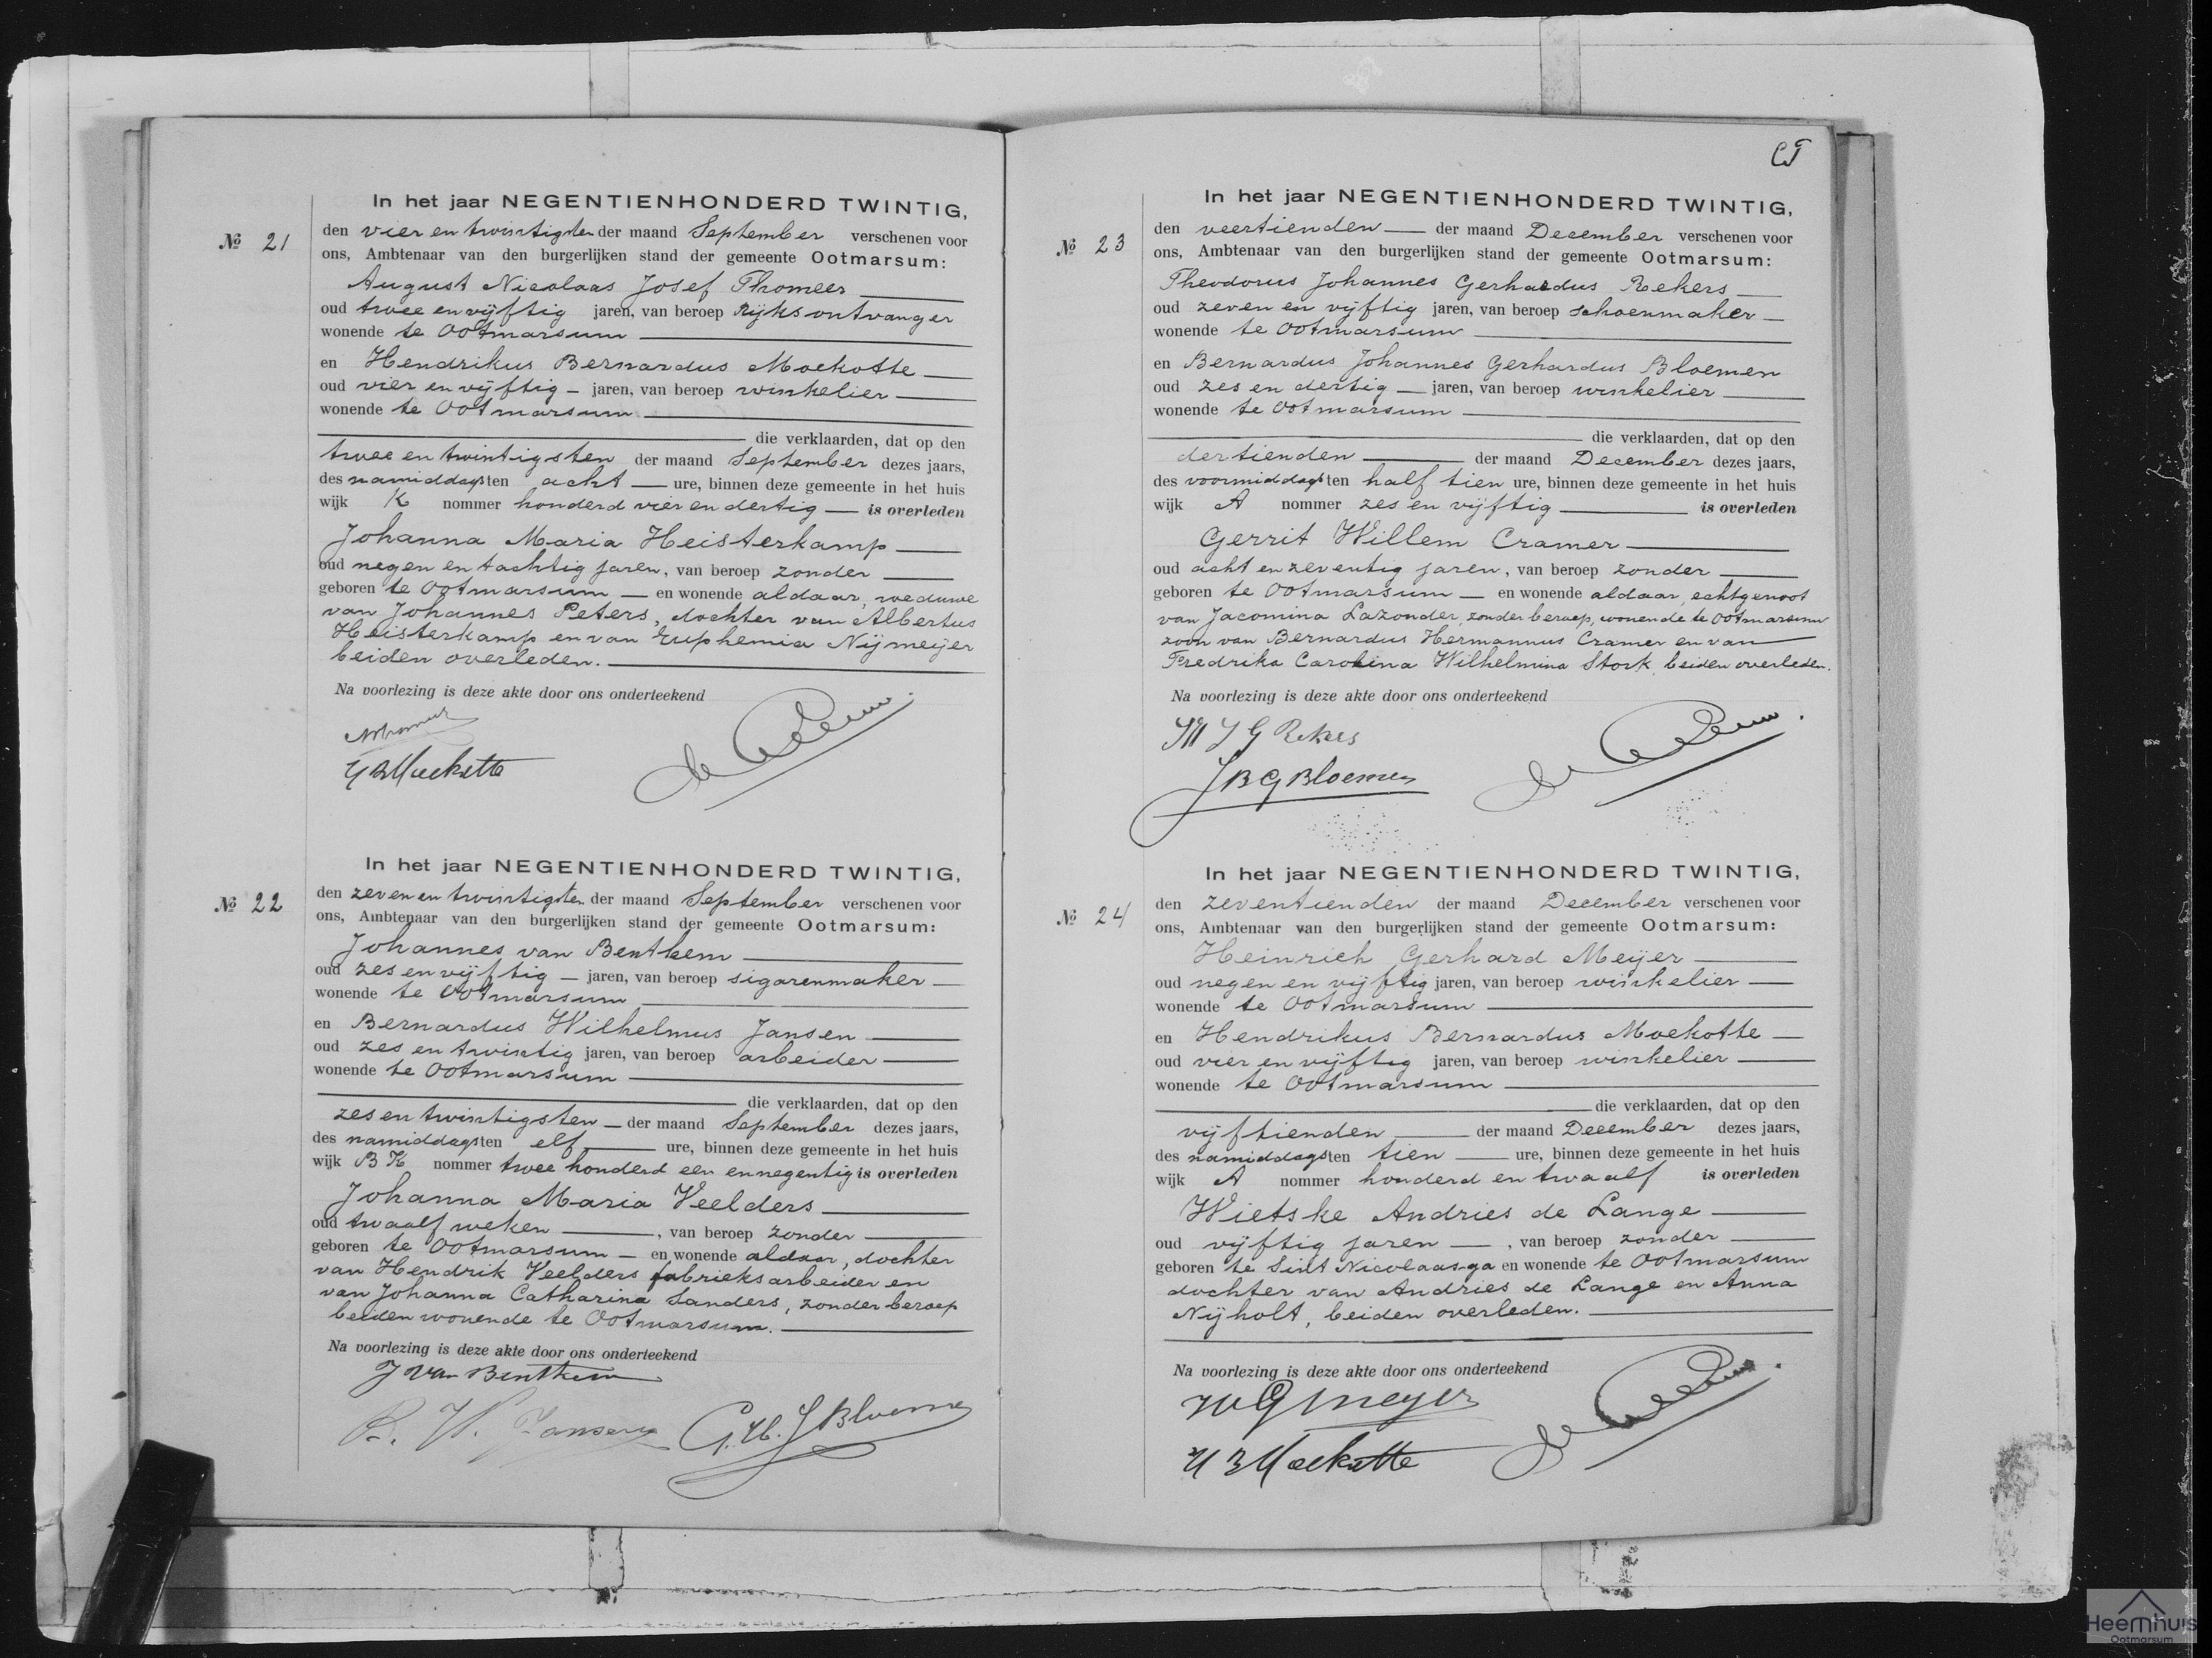 In het jaar NEGENTIENHONDERD TWINTIG,
№ 21
den vier en twintigsten der maand September verschenen voor
ons, Ambtenaar van den burgerlijken stand der gemeente Ootmarsum:
August Nicolaas Josef Thomeer
oud twee en vijftig jaren, van beroep Rijksontvanger
wonende te Ootmarsum
en Hendrikus Bernardus Moekotte
oud vier en vijftig jaren, van beroep winkelier
wonende te Ootmarsum
die verklaarden, dat op den
twee en twintigsten der maand September dezes jaars,
des namiddags ten acht ure, binnen deze gemeente in het huis
wijk K nommer honderd vier en dertig is overleden
Johanna Maria Heisterkamp
oud negen en tachtig jaren, van beroep zonder
geboren te Ootmarsum en wonende aldaar, weduwe
van Johannes Peters, dochter van Albertus
Heisterkamp en van Euphemia Nijmeijer
beiden overleden.
Na voorlezing is deze akte door ons onderteekend
H B Moekotte
In het jaar NEGENTIENHONDERD TWINTIG,
№ 22
den zeven en twintigsten der maand September verschenen voor
ons, Ambtenaar van den burgerlijken stand der gemeente Ootmarsum:
Johannes van Benthem
oud zes en vijftig jaren, van beroep sigarenmaker
wonende te Ootmarsum
en Bernardus Wilhelmus Jansen
oud zes en twintig jaren, van beroep arbeider
wonende te Ootmarsum
die verklaarden, dat op den
zes en twintigsten der maand September dezes jaars,
des namiddags ten elf ure, binnen deze gemeente in het huis
wijk B K nommer twee honderd een en negentig is overleden
Johanna Maria Veelders
oud twaalf weken, van beroep zonder
geboren te Ootmarsum en wonende aldaar, dochter
van Hendrik Veelders fabrieksarbeider en
van Johanna Catharina Sanders, zonder beroep
beiden wonende te Ootmarsum.
Na voorlezing is deze akte door ons onderteekend
J van Benthem
B. W. Jansen G. H. J Bloemen
In het jaar NEGENTIENHONDERD TWINTIG,
№ 23
den veertienden der maand December verschenen voor
ons, Ambtenaar van den burgerlijken stand der gemeente Ootmarsum:
Theodorus Johannes Gerhardus Rekers
oud zeven en vijftig jaren, van beroep schoenmaker
wonende te Ootmarsum
en Bernardus Johannes Gerhardus Bloemen
oud zes en dertig jaren, van beroep winkelier
wonende te Ootmarsum
die verklaarden, dat op den
dertienden der maand December dezes jaars,
des voormiddags ten half tien ure, binnen deze gemeente in het huis
wijk A nommer zes en vijftig is overleden
Gerrit Willem Cramer
oud acht en zeventig jaren, van beroep zonder
geboren te Ootmarsum en wonende aldaar, echtgenoot
van Jacomina Lazonder, zonder beroep, wonende te Ootmarsum
zoon van Bernardus Hermannus Cramer en van
Fredrika Carolina Wilhelmina Stork, beiden overleden.
Na voorlezing is deze akte door ons onderteekend
J G Rekers
J B G Bloemen
In het jaar NEGENTIENHONDERD TWINTIG,
№ 24
den zeventienden der maand December verschenen voor
ons, Ambtenaar van den burgerlijken stand der gemeente Ootmarsum:
Heinrich Gerhard Meijer
oud negen en vijftig jaren, van beroep winkelier
wonende te Ootmarsum
en Hendrikus Bernardus Moekotte
oud vier en vijftig jaren, van beroep winkelier
wonende te Ootmarsum
die verklaarden, dat op den
vijftienden der maand December dezes jaars,
des namiddags ten tien ure, binnen deze gemeente in het huis
wijk A nommer honderd en twaalf is overleden
Wietske Andries de Lange
oud vijftig jaren, van beroep zonder
geboren te Sint Nicolaasga en wonende te Ootmarsum
dochter van Andries de Lange en Anna
Nijholt, beiden overleden.
Na voorlezing is deze akte door ons onderteekend
H G Meyer
H B Moekotte
Heemhuis
Ootmarsum